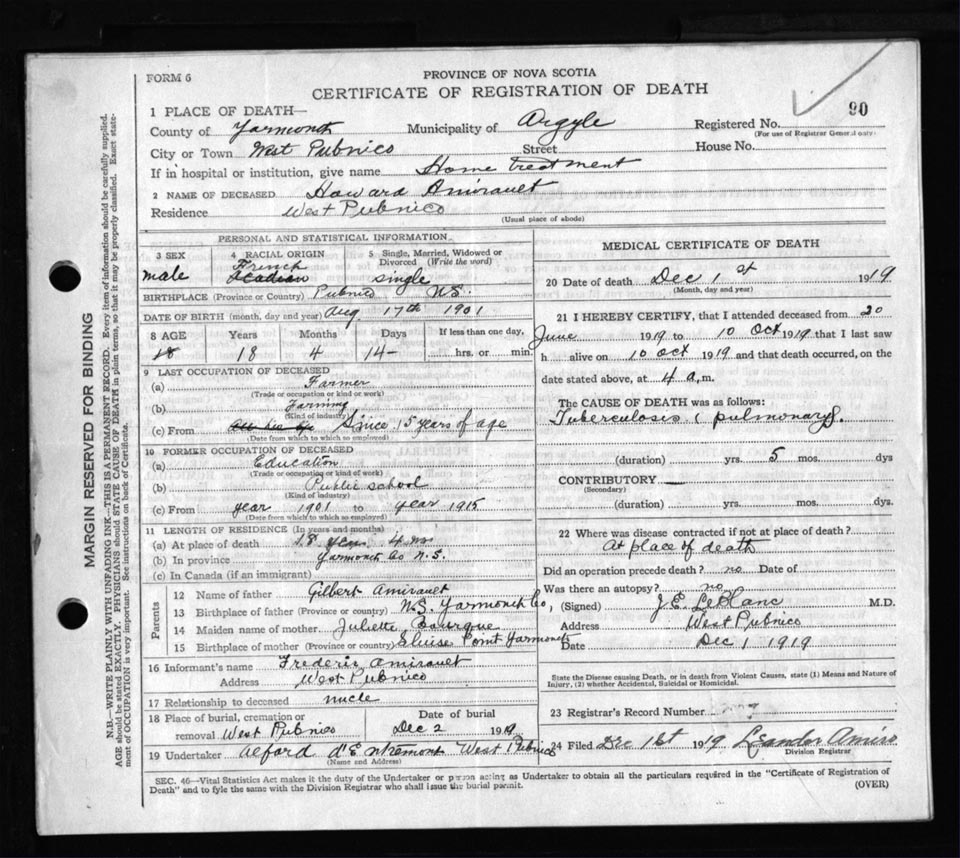 FORM 6
PROVINCE OF NOVA SCOTIA
CERTIFICATE OF REGISTRATION OF DEATH
90
1 PLACE OF DEATH—
County of Yarmouth Municipality of Argyle Registered No.
(For use of Registrar General only)
City or Town West Pubnico Street House No.
If in hospital or institution, give name Home treatment
2 NAME OF DECEASED Howard Amirault
Residence West Pubnico
(Usual place of abode)
PERSONAL AND STATISTICAL INFORMATION
3 SEX male
4 RACIAL ORIGIN French Acadian
5 Single, Married, Widowed or Divorced (Write the word) single
BIRTHPLACE (Province or Country) Pubnico N.S.
DATE OF BIRTH (month, day and year) Aug 17th 1901
8 AGE Years Months Days If less than one day,
18 18 4 14- hrs. or min.
9 LAST OCCUPATION OF DECEASED
(a) Farmer
(Trade or occupation or kind of work)
(b) Farming
(Kind of industry)
(c) From Since 15 years of age
(Date from which to which so employed)
10 FORMER OCCUPATION OF DECEASED
(a) Education
(Trade or occupation or kind of work)
(b) Public school
(Kind of industry)
(c) From year 1901 to year 1915
(Date from which to which so employed)
11 LENGTH OF RESIDENCE (in years and months)
(a) At place of death 18 years 4 mos
(b) In province Yarmouth Co N.S.
(c) In Canada (if an immigrant)
Parents
12 Name of father Gilbert Amirault
13 Birthplace of father (Province or country) N.S. Yarmouth Co,
14 Maiden name of mother Juliette Bourque
15 Birthplace of mother (Province or country) Sluise Point Yarmouth
16 Informant's name Frederic Amirault
Address West Pubnico
17 Relationship to deceased uncle
18 Place of burial, cremation or removal West Pubnico
Date of burial
Dec 2 1919
19 Undertaker Alford d'Entremont West Pubnico
(Name and Address)
MEDICAL CERTIFICATE OF DEATH
20 Date of death Dec 1st 1919
(Month, day and year)
21 I HEREBY CERTIFY, that I attended deceased from 20
June 1919 to 10 Oct 1919 that I last saw
h alive on 10 oct 1919 and that death occurred, on the
date stated above, at 4 a, m.
The CAUSE OF DEATH was as follows:
Tuberculosis (pulmonary).
(duration) yrs. 5 mos. dys
CONTRIBUTORY —
(Secondary)
(duration) yrs. mos. dys.
22 Where was disease contracted if not at place of death?
At place of death
Did an operation precede death? no Date of
Was there an autopsy? no
(Signed) J.E. LeBlanc M.D.
Address West Pubnico
Date Dec 1 1919
State the Disease causing Death, or in death from Violent Causes, state (1) Means and Nature of
Injury, (2) whether Accidental, Suicidal or Homicidal.
23 Registrar's Record Number
24 Filed Dec 1st 1919 Leander Amiro
Division Registrar
SEC. 46—Vital Statistics Act makes it the duty of the Undertaker or person acting as Undertaker to obtain all the particulars required in the "Certificate of Registration of
Death" and to fyle the same with the Division Registrar who shall issue the burial permit.
(OVER)
MARGIN RESERVED FOR BINDING
N.B.—WRITE PLAINLY WITH UNFADING INK—THIS IS A PERMANENT RECORD. Every item of information should be carefully supplied.
AGE should be stated EXACTLY. PHYSICIANS should STATE CAUSE OF DEATH in plain terms, so that it may be properly classified. Exact state-
ment of OCCUPATION is very important. See instructions on back of Certificate.